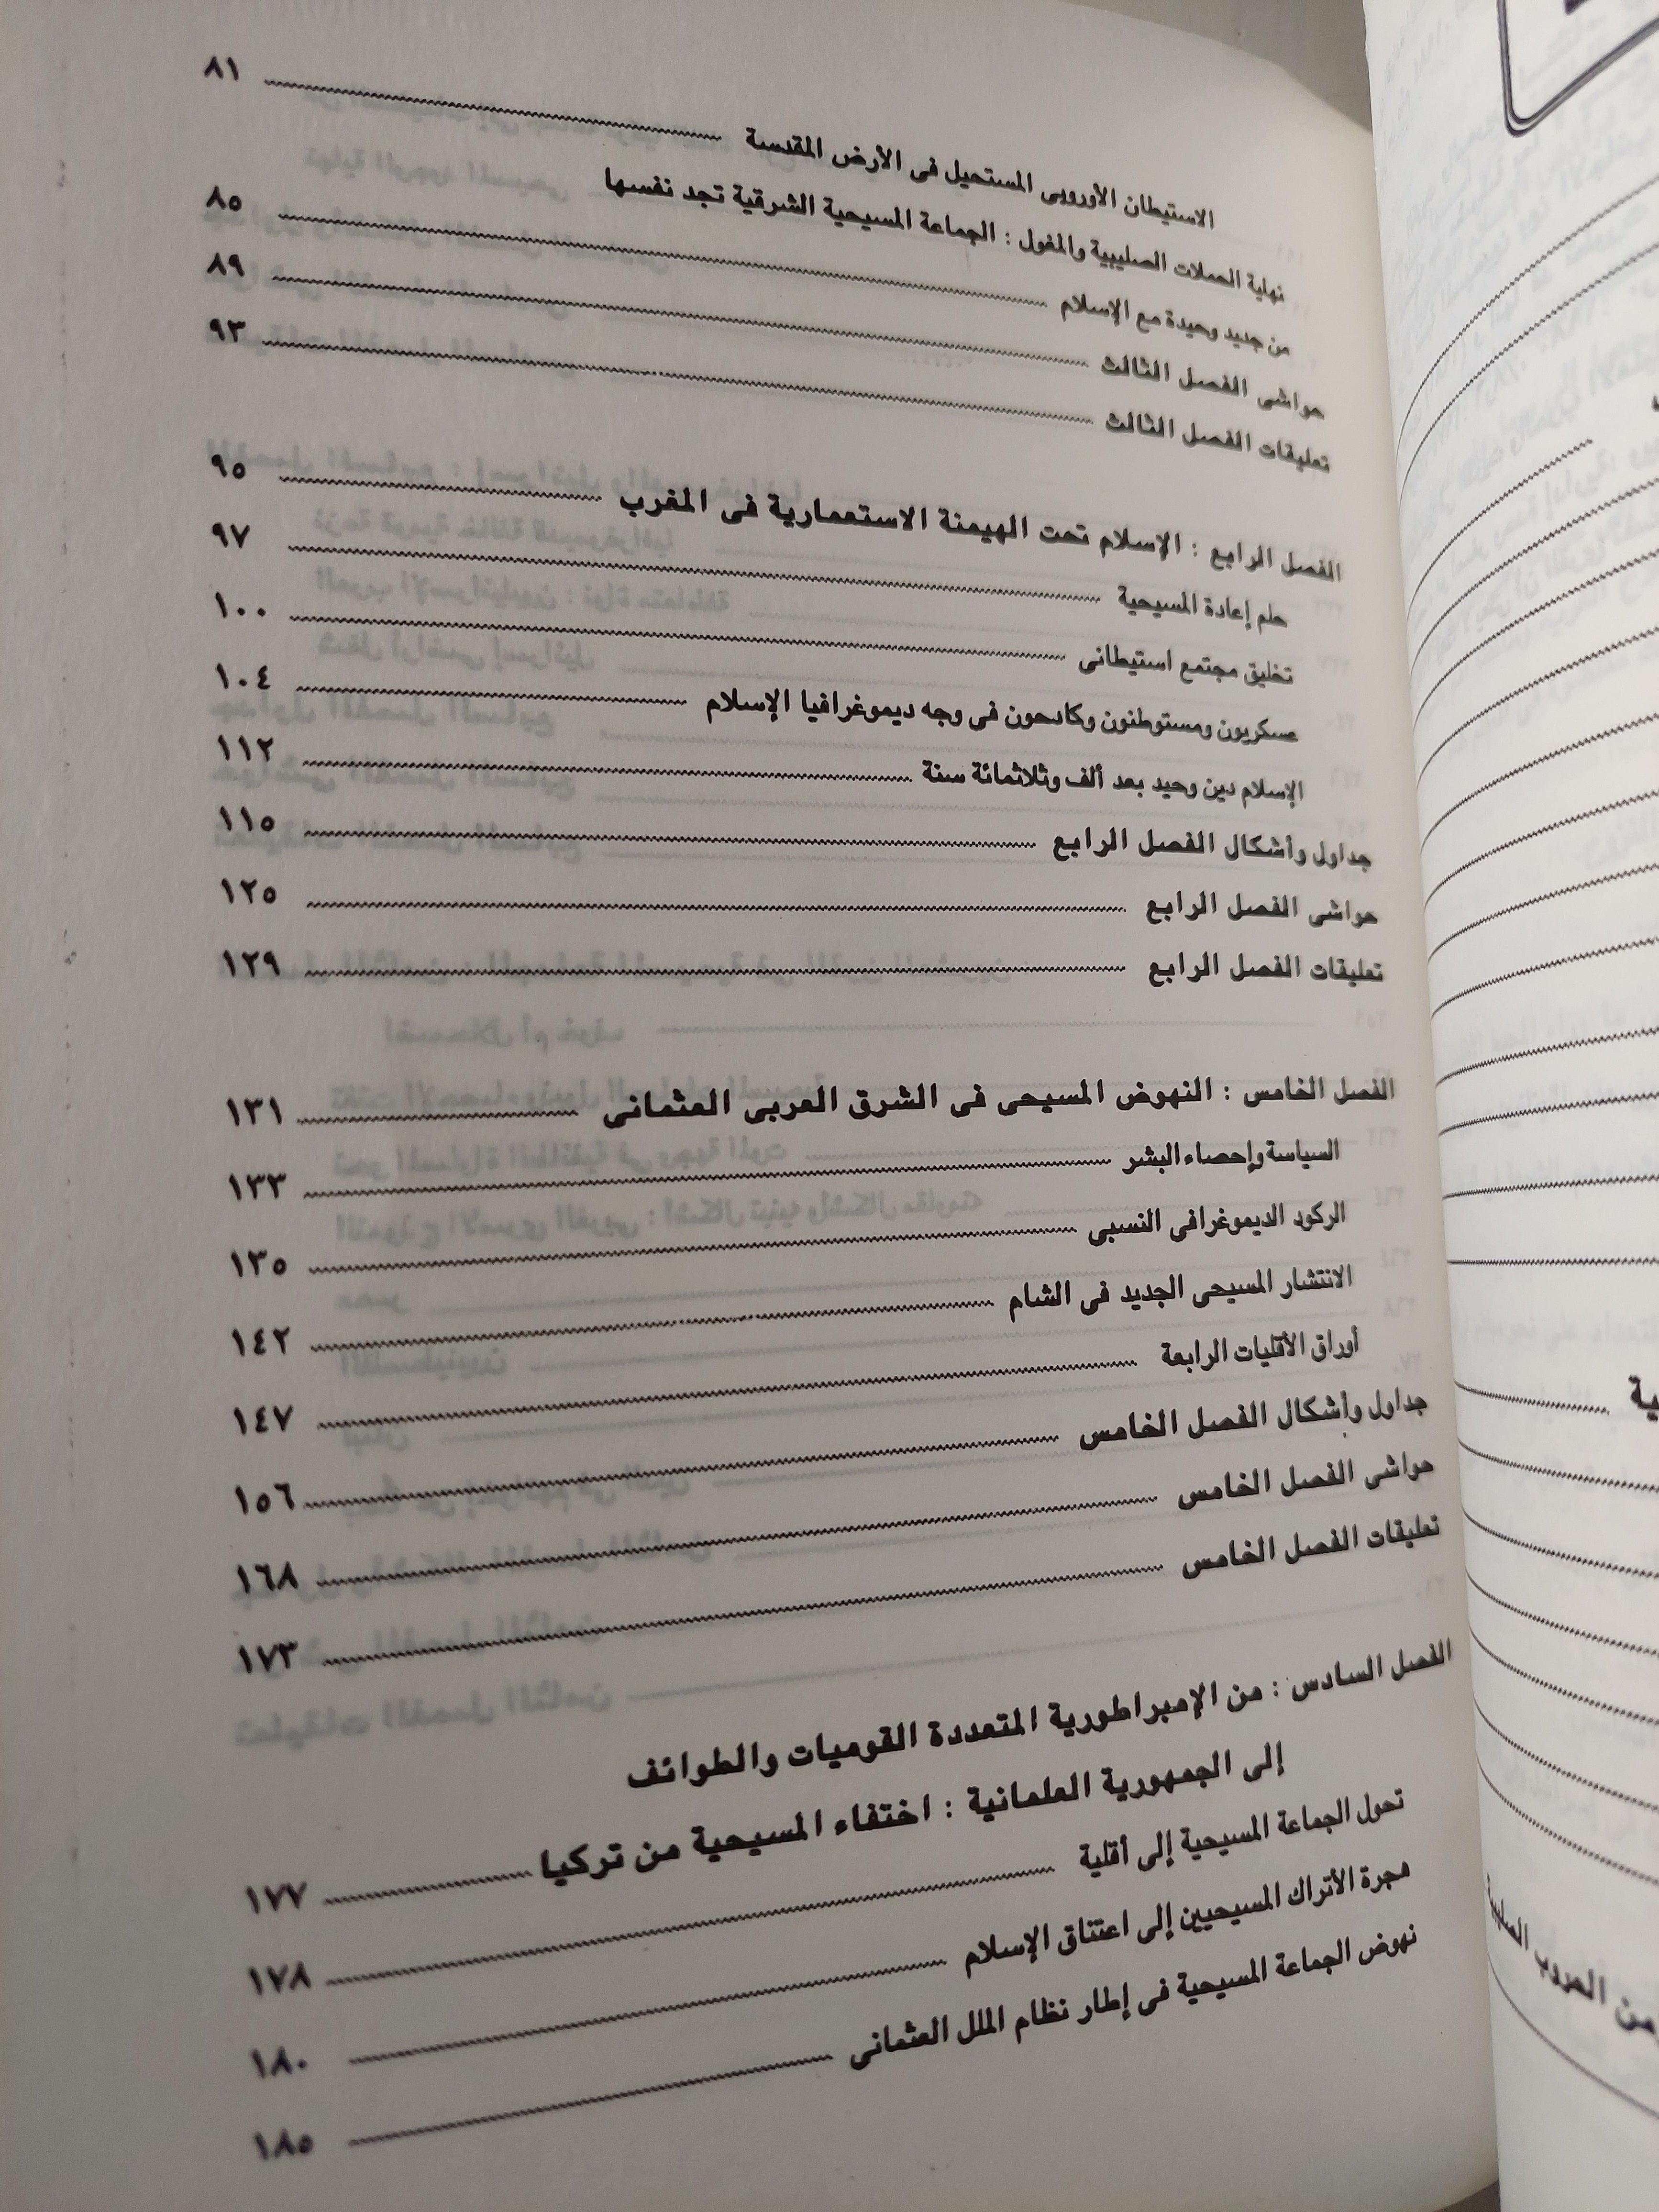 الاستيطان الأوروبى المستحيل فى الأرض المقدسة ٨١
نهاية الحملات الصليبية والمغول : الجماعة المسيحية الشرقية تجد نفسها
من جديد وحيدة مع الإسلام ٨٥
حواشى الفصل الثالث ٨٩
تعليقات الفصل الثالث ٩٣
الفصل الرابع : الإسلام تحت الهيمنة الاستعمارية فى المغرب ٩٥
حلم إعادة المسيحية ٩٧
تخليق مجتمع استيطانى ١٠٠
عسكريون ومستوطنون وكادحون فى وجه ديموغرافيا الإسلام ١٠٤
الإسلام دين وحيد بعد ألف وثلاثمائة سنة ١١٢
جداول وأشكال الفصل الرابع ١١٥
حواشى الفصل الرابع ١٢٥
تعليقات الفصل الرابع ١٢٩
الفصل الخامس : النهوض المسيحى فى الشرق العربى العثمانى ١٣١
السياسة وإحصاء البشر ١٣٣
الركود الديموغرافى النسبى ١٣٥
الانتشار المسيحى الجديد فى الشام ١٤٢
أوراق الأقليات الرابعة ١٤٧
جداول وأشكال الفصل الخامس ١٥٦
حواشى الفصل الخامس ١٦٨
تعليقات الفصل الخامس ١٧٣
الفصل السادس : من الإمبراطورية المتعددة القوميات والطوائف
إلى الجمهورية العلمانية : اختفاء المسيحية من تركيا ١٧٧
تحول الجماعة المسيحية إلى أقلية ١٧٨
هجرة الأتراك المسيحيين إلى اعتناق الإسلام ١٨٠
نهوض الجماعة المسيحية فى إطار نظام الملل العثمانى ١٨٥
من الحروب